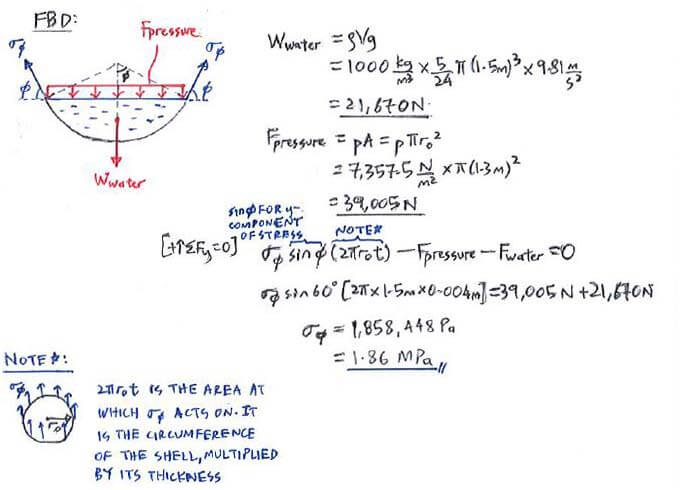 FBD:
Fpressure
σφ
σφ
φ
φ
φ
Wwater
Wwater = ρVg
= 1000 kg/m³ × 5/24 π(1.5m)³ × 9.81 m/s²
= 21,670N
Fpressure = pA = pπr₀²
= 7,357.5 N/m² × π(1.3m)²
= 39,005N
sinφ FOR y-
COMPONENT
OF STRESS
NOTE*
[+↑ΣFy=0] σφ sinφ (2πr₀t) — Fpressure — Fwater = 0
σφ sin60° [2π×1.5m×0.004m] = 39,005N + 21,670N
σφ = 1,858,448 Pa
= 1.86 MPa //
NOTE*:
σφ
r₀
2πr₀t IS THE AREA AT
WHICH σφ ACTS ON. IT
IS THE CIRCUMFERENCE
OF THE SHELL, MULTIPLIED
BY ITS THICKNESS